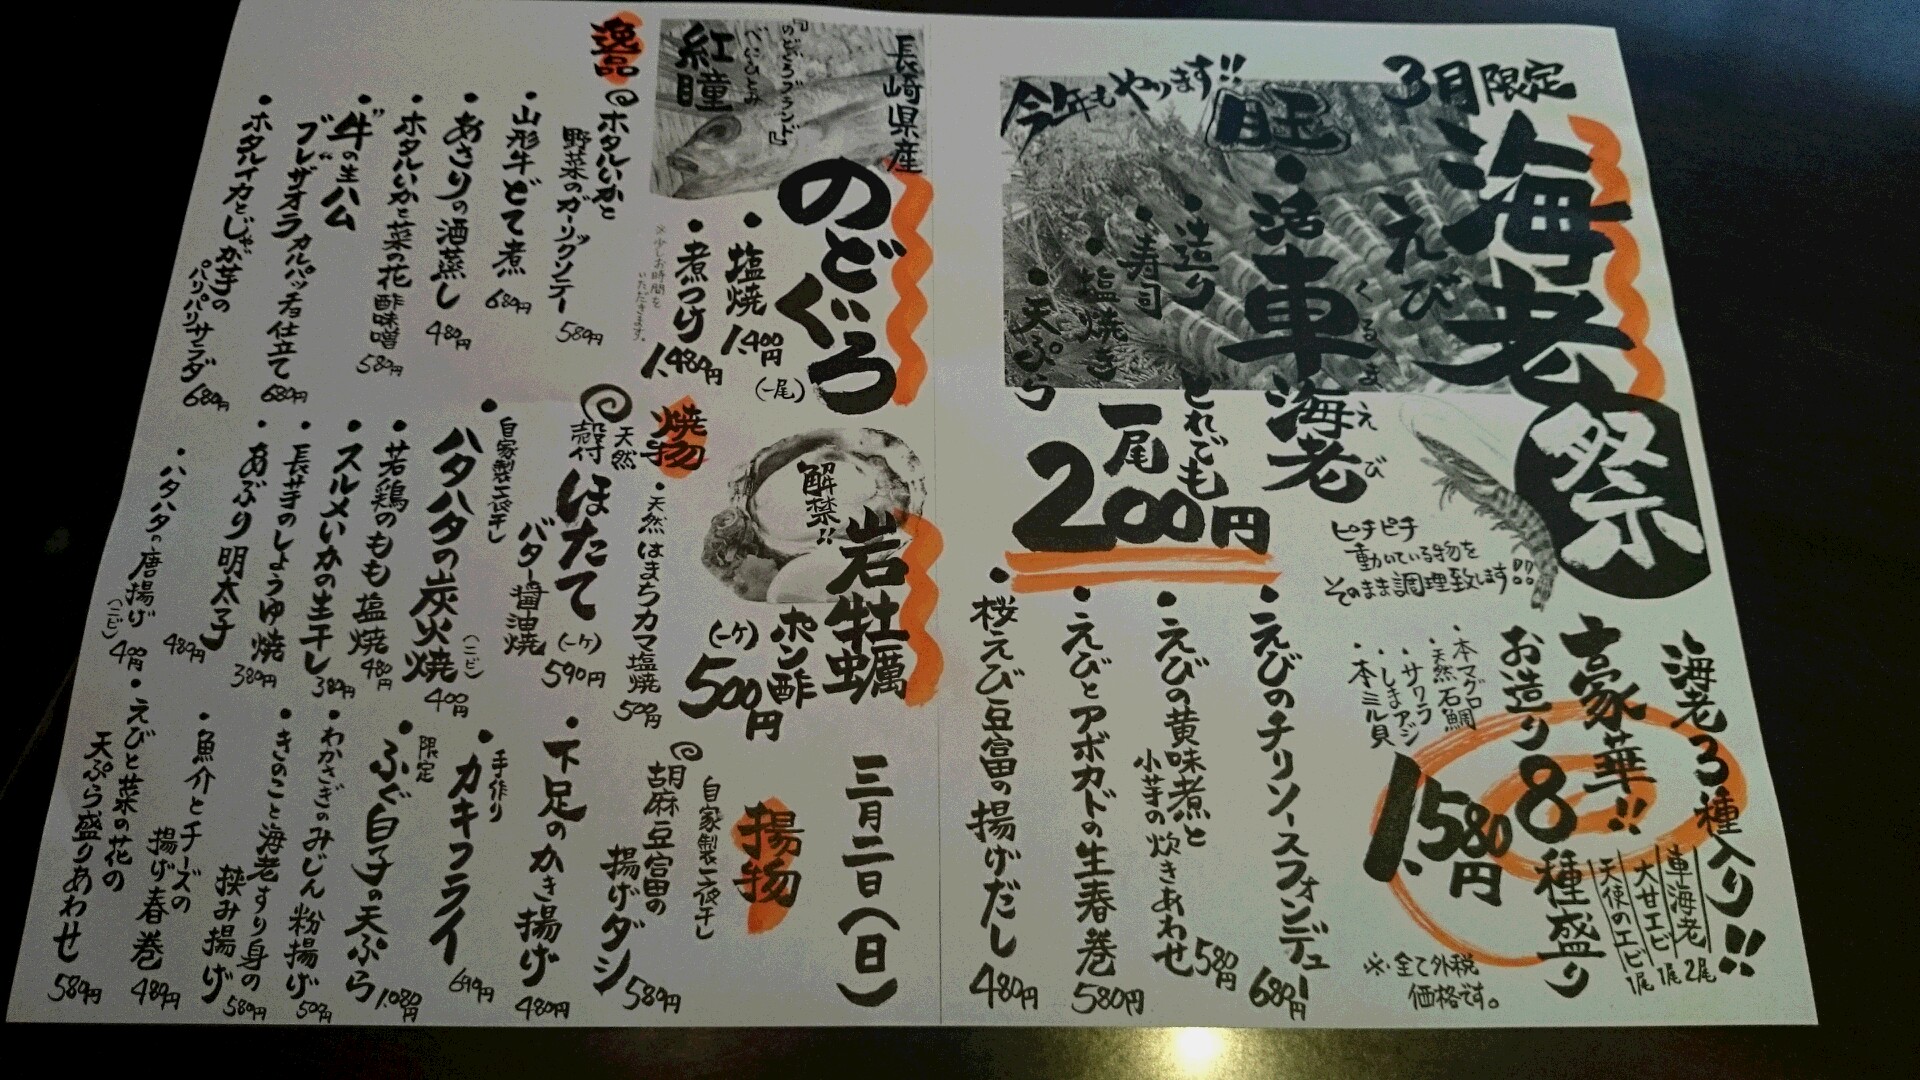 3月限定
海老祭
えび
今年もやります!!
旺・活車海老
くるまえび
・お造り
・寿司
・塩焼き
・天ぷら
どれでも
一尾
200円
ピチピチ
動いている物を
そのまま調理致します!!
海老3種入り!!
車海老 2尾
大甘エビ 1尾
天使のエビ 1尾
豪華!!
お造り8種盛り
1,580円
・本マグロ
・天然石鯛
・サワラ
・しまアジ
・本ミル貝
※全て外税
価格です。
・えびのチリソースフォンデュー 680円
・えびの黄味煮と
小芋の炊きあわせ 580円
・えびとアボカドの生春巻 580円
・桜えび豆富の揚げだし 480円
長崎県産
のどぐろ
『のどぐろブランド』
べにひとみ
紅瞳
・塩焼 1,400円
(一尾)
・煮つけ 1,480円
※少しお時間を
いただきます。
解禁!!
岩牡蠣
ポン酢
(一ケ) 500円
三月二日(日)
逸品
ホタルいかと
野菜のガーリックソテー 580円
・山形牛どて煮 680円
・あさりの酒蒸し 480円
・ホタルいかと菜の花 酢味噌 580円
・牛の生ハム
ブレザオラ カルパッチョ仕立て 680円
・ホタルイカとじゃが芋の
パリパリサラダ 680円
焼物
・天然はまちカマ塩焼 500円
天然
殻付
ほたて
バター醤油焼
(一ケ) 590円
・自家製一夜干し
ハタハタの炭火焼
(二ピ) 400円
・若鶏のもも塩焼 480円
・スルメいかの生干し 380円
・長芋のしょうゆ焼 380円
・あぶり明太子 480円
・ハタハタの唐揚げ
(二ピ) 400円
揚物
自家製一夜干し
胡麻豆富の
揚げダシ 580円
・下足のかき揚げ 480円
・手作り
カキフライ 690円
・限定
ふぐ白子の天ぷら 1,080円
・わかさぎのみじん粉揚げ 500円
・きのこと海老すり身の
挟み揚げ 580円
・魚介とチーズの
揚げ春巻 480円
・えびと菜の花の
天ぷら盛りあわせ 580円